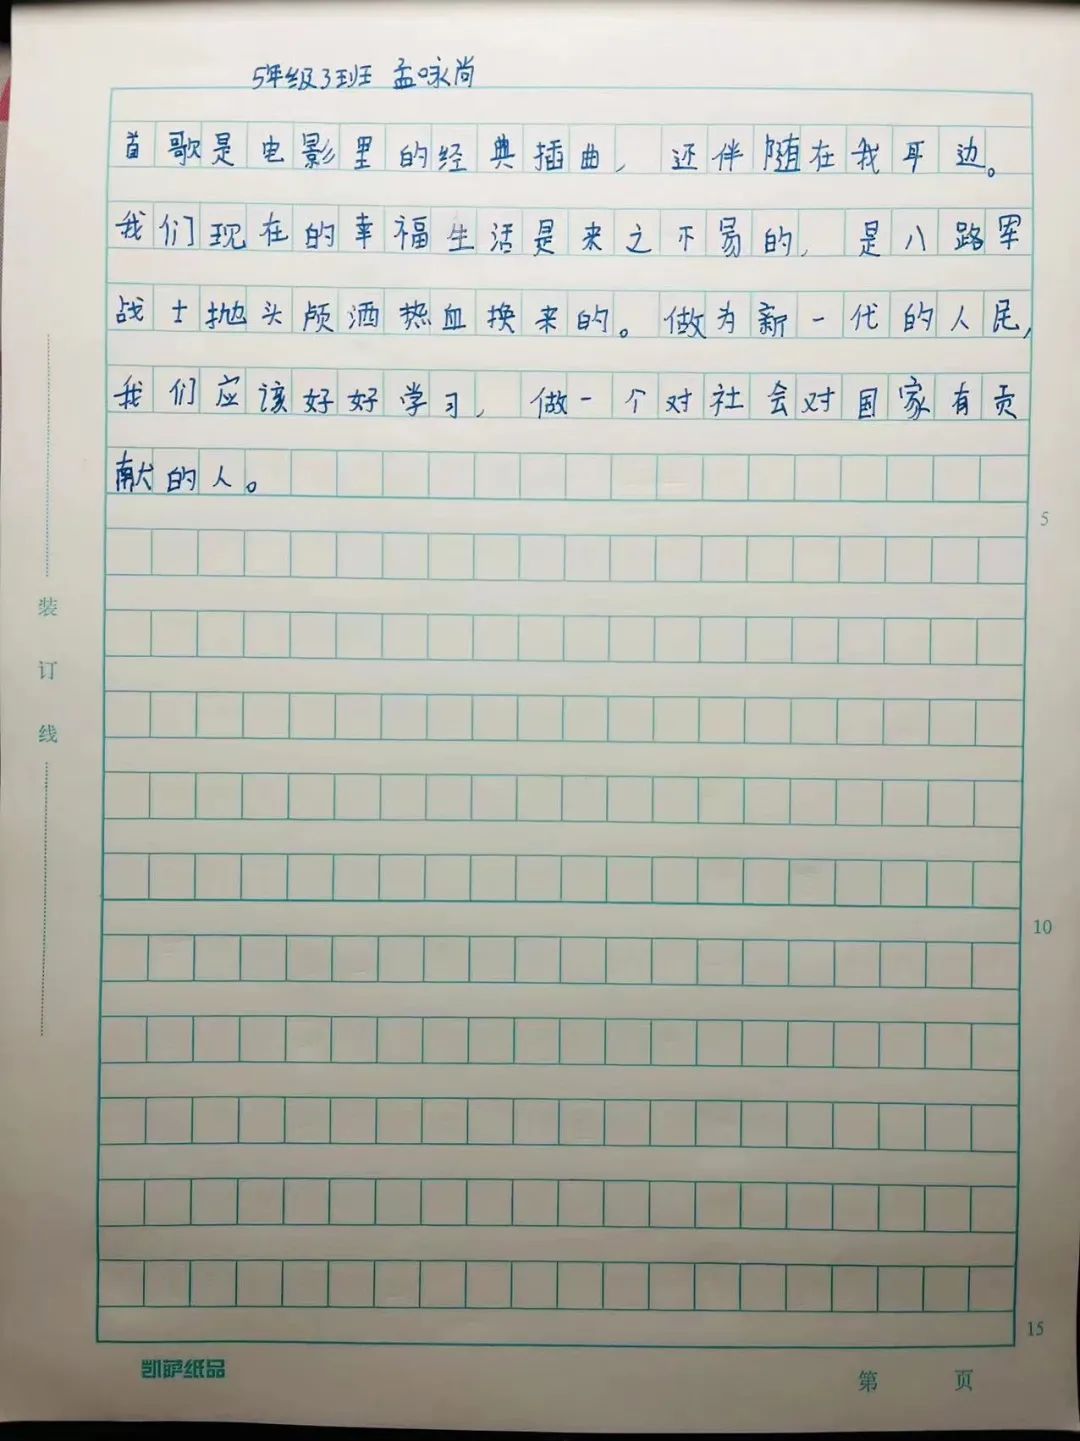 5年级3班 孟咏尚
首歌是电影里的经典插曲，还伴随在我耳边。
我们现在的幸福生活是来之不易的，是八路军
战士抛头颅洒热血换来的。做为新一代的人民，
我们应该好好学习，做一个对社会对国家有贡
献的人。
5
装
订
线
10
15
凯萨纸品
第 页